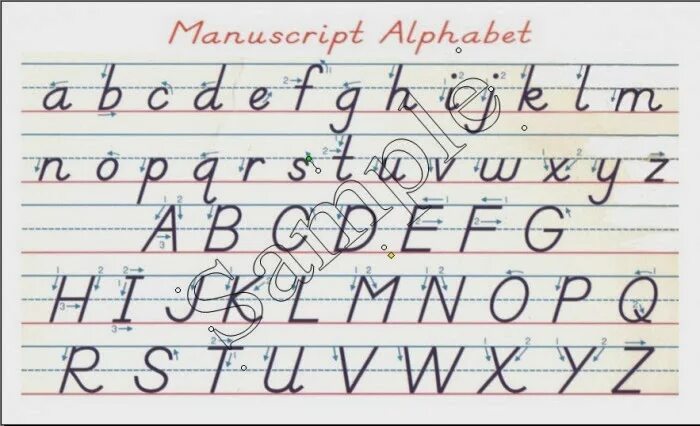 Manuscript Alphabet
a b c d e f g h i j k l m
n o p q r s t u v w x y z
A B C D E F G
H I J K L M N O P Q
R S T U V W X Y Z
Sample